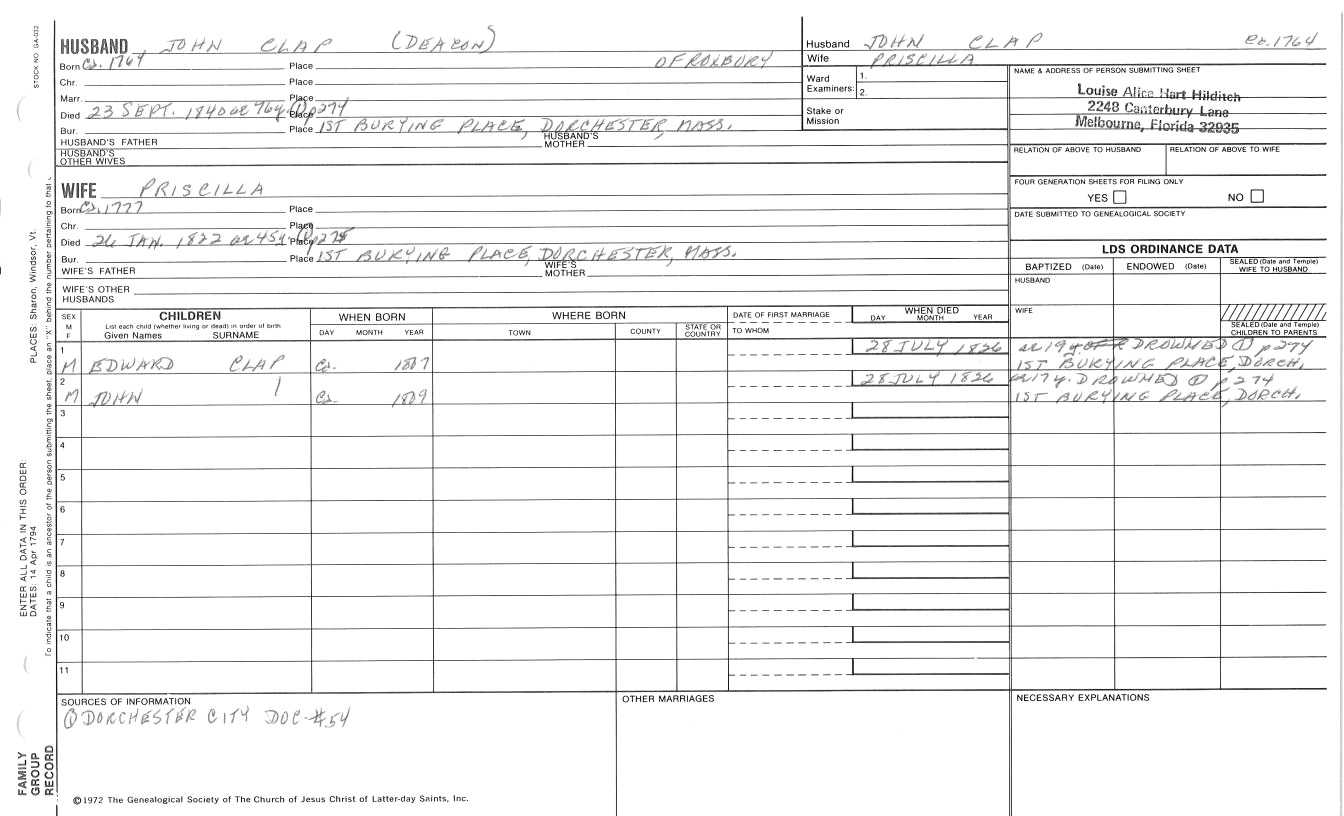 STOCK NO. GA-032
HUSBAND, JOHN CLAP (DEACON)
Born Ca. 1764 Place OF ROXBURY
Chr. Place
Marr. Place
Died 23 SEPT. 1840 ae 76y. ① p274 Place
Bur. Place 1ST BURYING PLACE, DORCHESTER, MASS.
HUSBAND'S FATHER HUSBAND'S MOTHER
HUSBAND'S OTHER WIVES
Husband JOHN CLAP ca. 1764
Wife PRISCILLA
Ward Examiners: 1. 2.
Stake or Mission
NAME & ADDRESS OF PERSON SUBMITTING SHEET
Louise Alice Hart Hilditch
2248 Canterbury Lane
Melbourne, Florida 32935
RELATION OF ABOVE TO HUSBAND RELATION OF ABOVE TO WIFE
FOUR GENERATION SHEETS FOR FILING ONLY
YES NO
DATE SUBMITTED TO GENEALOGICAL SOCIETY
WIFE PRISCILLA
Born Ca. 1777 Place
Chr. Place
Died 26 JAN. 1822 ae 45y. ① p275 Place
Bur. Place 1ST BURYING PLACE, DORCHESTER, MASS.
WIFE'S FATHER WIFE'S MOTHER
WIFE'S OTHER HUSBANDS
LDS ORDINANCE DATA
BAPTIZED (Date) ENDOWED (Date) SEALED (Date and Temple) WIFE TO HUSBAND
HUSBAND
WIFE
SEALED (Date and Temple) CHILDREN TO PARENTS
SEX M F CHILDREN WHEN BORN WHERE BORN DATE OF FIRST MARRIAGE WHEN DIED
List each child (whether living or dead) in order of birth
Given Names SURNAME DAY MONTH YEAR TOWN COUNTY STATE OR COUNTRY TO WHOM DAY MONTH YEAR
1 M EDWARD CLAP Ca. 1807 28 JULY 1826 ae 19y. DROWNED ① p274
1ST BURYING PLACE, DORCH.
2 M JOHN Ca. 1809 28 JULY 1826 ae 17y. DROWNED ① p274
1ST BURYING PLACE, DORCH.
3
4
5
6
7
8
9
10
11
SOURCES OF INFORMATION OTHER MARRIAGES NECESSARY EXPLANATIONS
① DORCHESTER CITY DOC #54
©1972 The Genealogical Society of The Church of Jesus Christ of Latter-day Saints, Inc.
FAMILY GROUP RECORD
ENTER ALL DATA IN THIS ORDER:
DATES: 14 Apr 1794 PLACES: Sharon, Windsor, Vt.
To indicate that a child is an ancestor of the person submitting the sheet, place an "X" behind the number pertaining to that